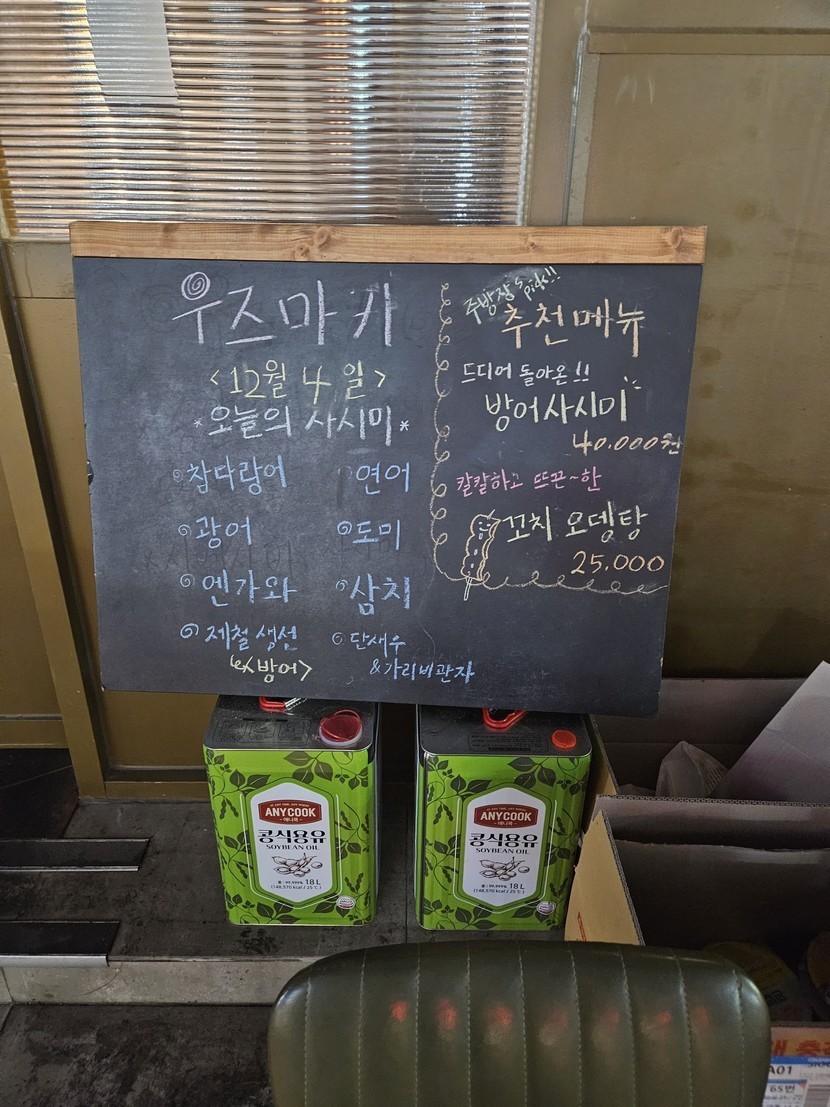 우즈마키
<12월 4일>
*오늘의 사시미*
참다랑어
연어
광어
도미
엔가와
삼치
제철 생선
<방어>
단새우
&가리비관자
주방장's pick!!
추천메뉴
드디어 돌아온!!
방어사시미
40.000원
칼칼하고 뜨끈~한
꼬치 오뎅탕
25.000
ANYCOOK
-애니쿡-
콩식용유
SOYBEAN OIL
18L
(148,570 kcal / 25℃)
ANYCOOK
-애니쿡-
콩식용유
SOYBEAN OIL
18L
(148,570 kcal / 25℃)
A01
65번